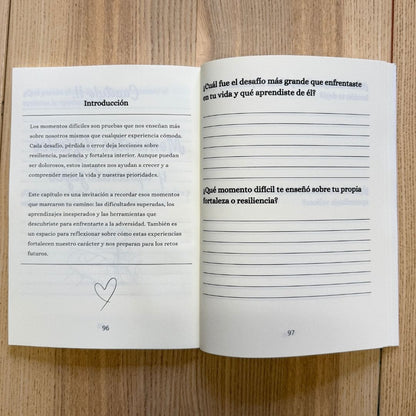 Introducción
Los momentos difíciles son pruebas que nos enseñan más
sobre nosotros mismos que cualquier experiencia cómoda.
Cada desafío, pérdida o error deja lecciones sobre
resiliencia, paciencia y fortaleza interior. Aunque puedan
ser dolorosos, estos instantes nos ayudan a crecer y a
comprender mejor la vida y nuestras prioridades.
Este capítulo es una invitación a recordar esos momentos que
que marcaron tu camino: las dificultades superadas, los
aprendizajes inesperados y las herramientas que
descubriste para enfrentarte a la adversidad. También es
un espacio para reflexionar sobre cómo estas experiencias
fortalecen nuestro carácter y nos preparan para los retos
futuros.
96
¿Cuál fue el desafío más grande que enfrentaste
en tu vida y qué aprendiste de él?
¿Qué momento difícil te enseñó sobre tu propia
fortaleza o resiliencia?
97